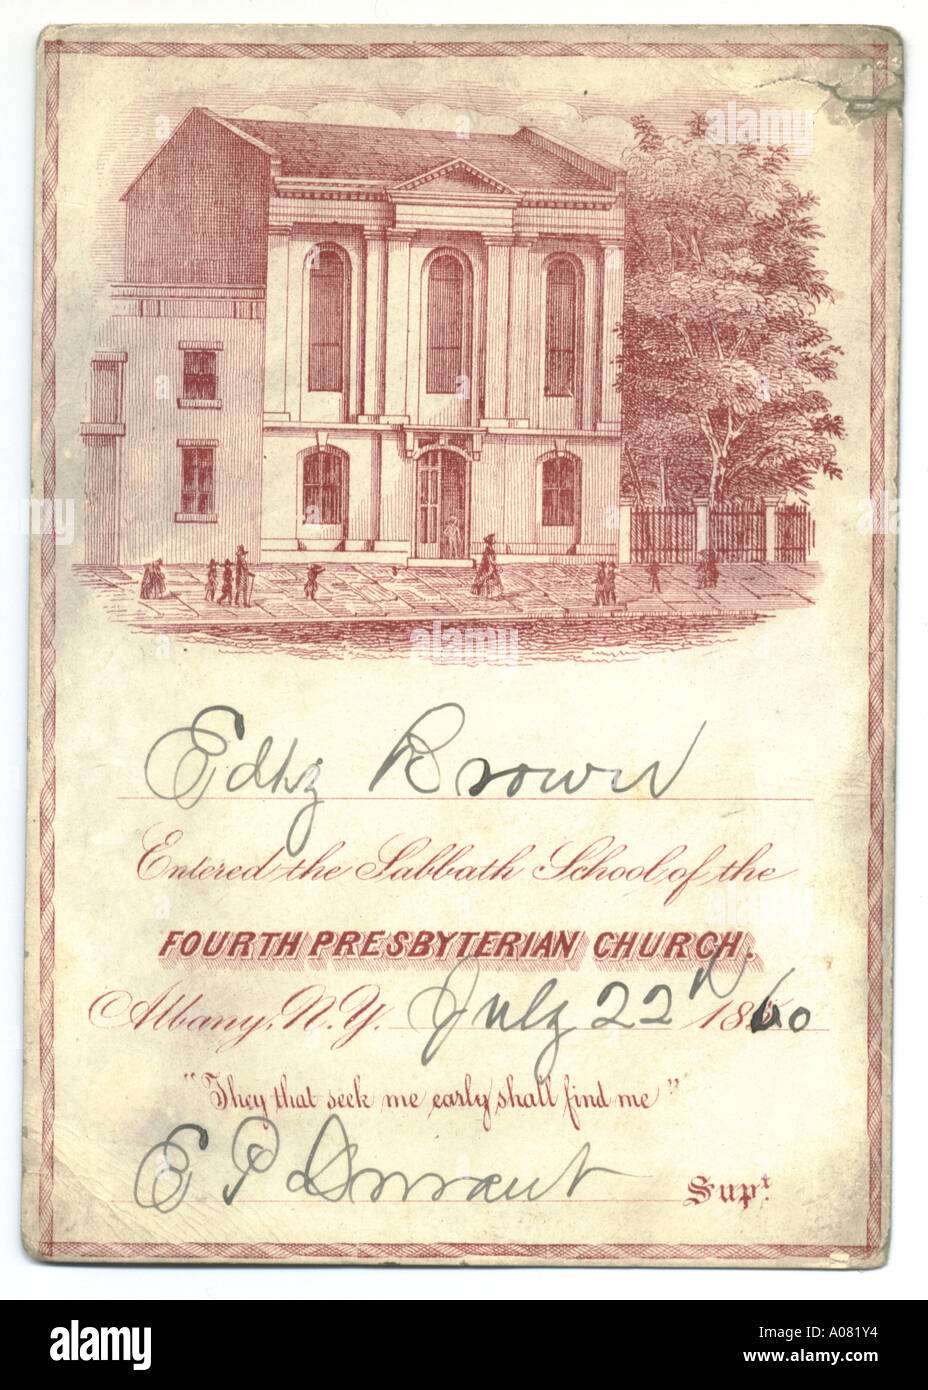 Brown
Entered the Sabbath School of the
FOURTH PRESBYTERIAN CHURCH.
Albany, N.Y. July 22nd 1860
"They that seek me early shall find me"
E P Durrant Supt.
alamy stock photo
A081Y4
www.alamy.com